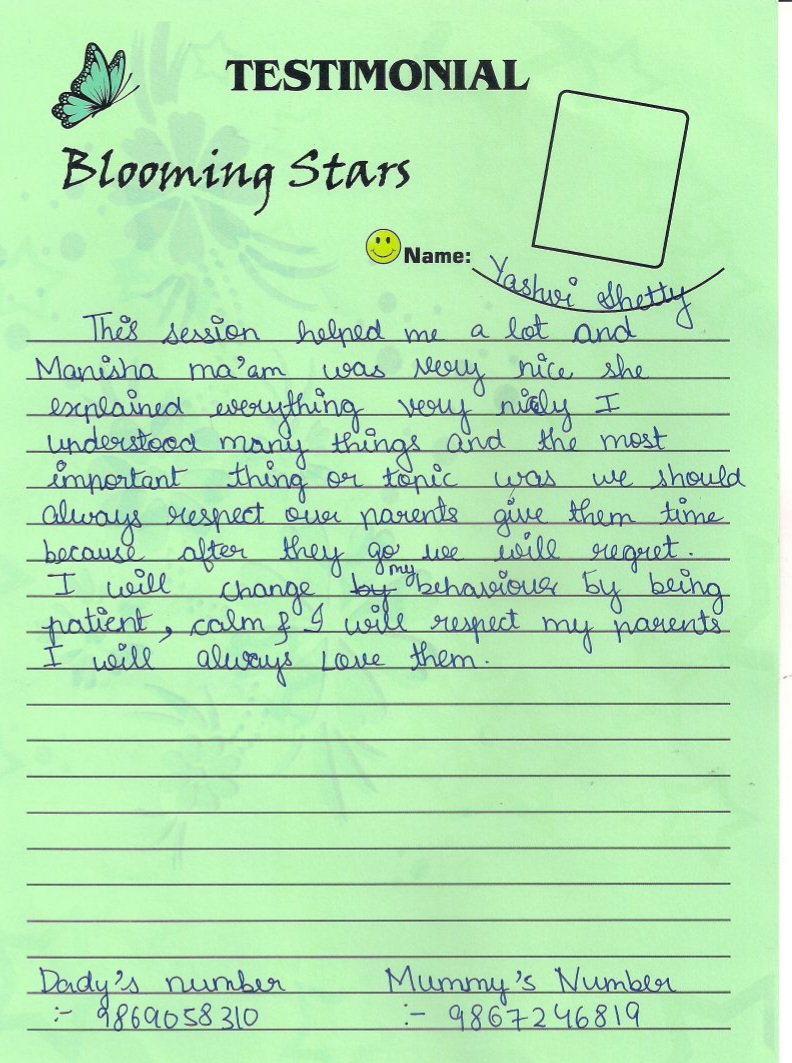 TESTIMONIAL
Blooming Stars
Name: Yashvi Shetty
This session helped me a lot and
Manisha ma'am was very nice she
explained everything very nicely I
understood many things and the most
important thing or topic was we should
always respect our parents give them time
because after they go we will regret.
I will change by my behaviour by being
patient, calm & I will respect my parents
I will always Love them.
Dady's number Mummy's Number
:- 9869058310 :- 9867246819